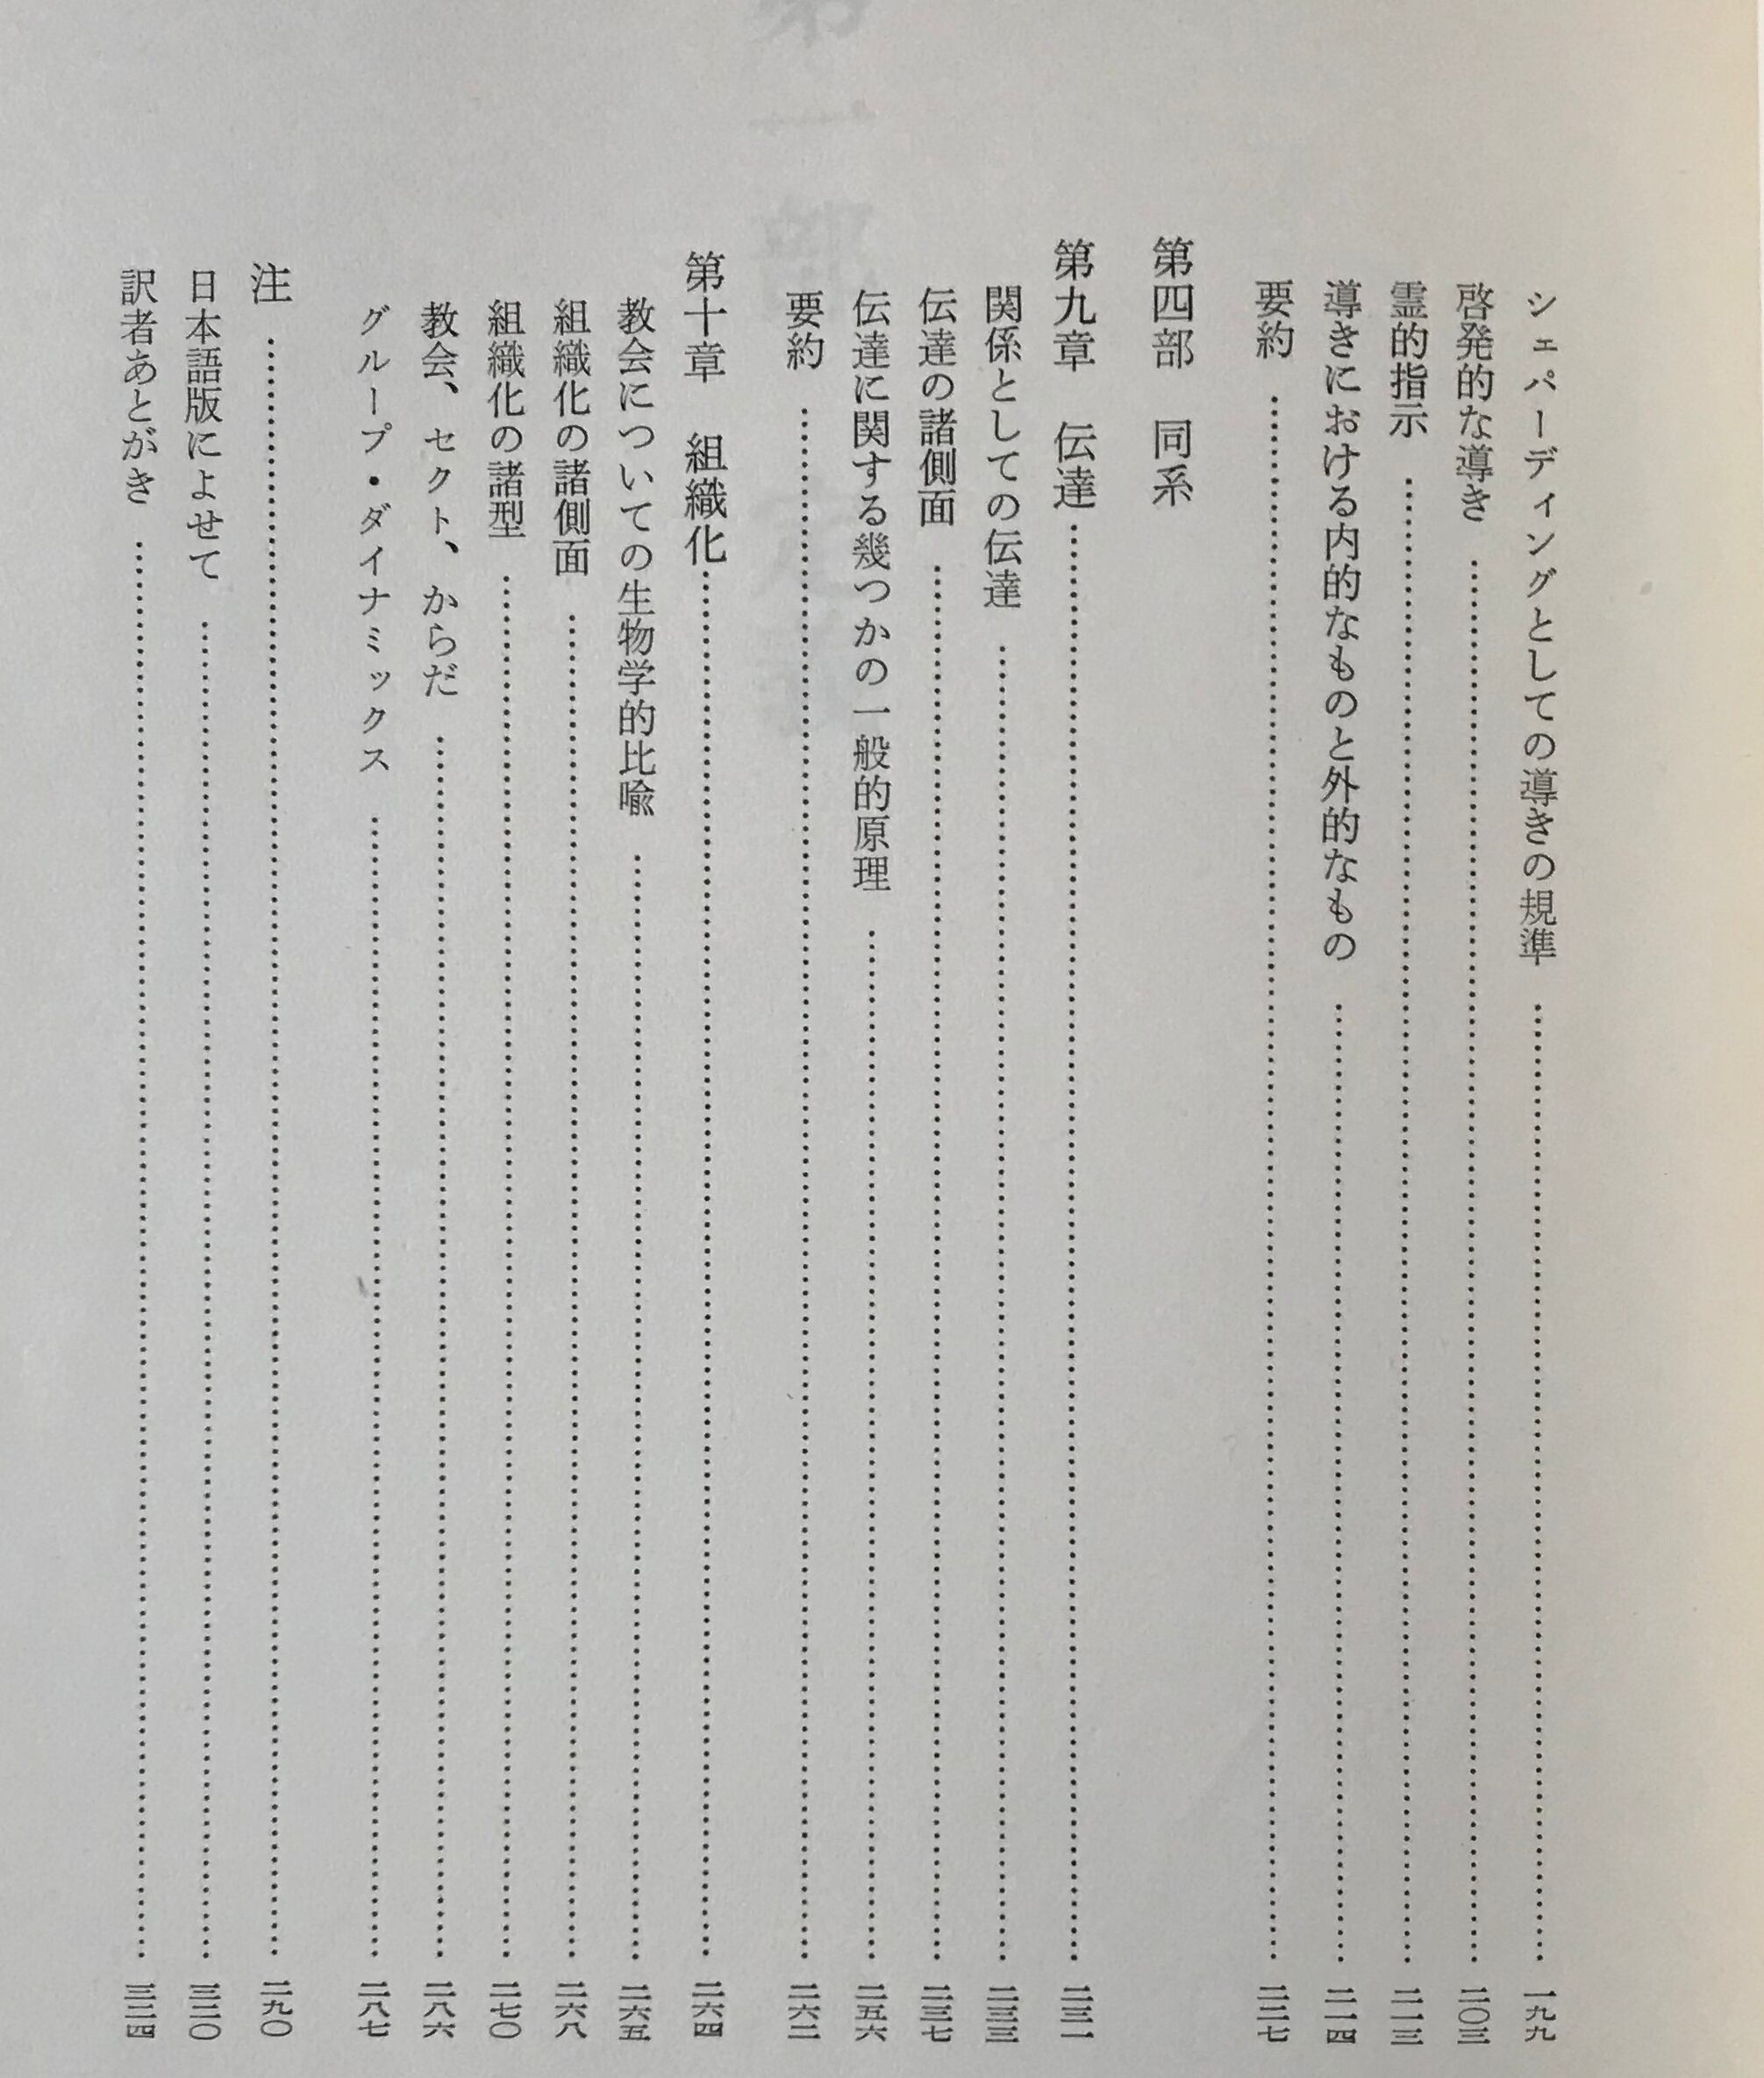 シェパーディングとしての導きの規準……一九九
啓発的な導き……二〇三
霊的指示……二一三
導きにおける内的なものと外的なもの……二一四
要約……二二七
第四部　同系
第九章　伝達……二三一
関係としての伝達……二三三
伝達の諸側面……二三七
伝達に関する幾つかの一般的原理……二五六
要約……二六二
第十章　組織化……二六四
教会についての生物学的比喩……二六五
組織化の諸側面……二六八
組織化の諸型……二七〇
教会、セクト、からだ……二八六
グループ・ダイナミックス……二八七
注……二九〇
日本語版によせて……三二〇
訳者あとがき……三二四